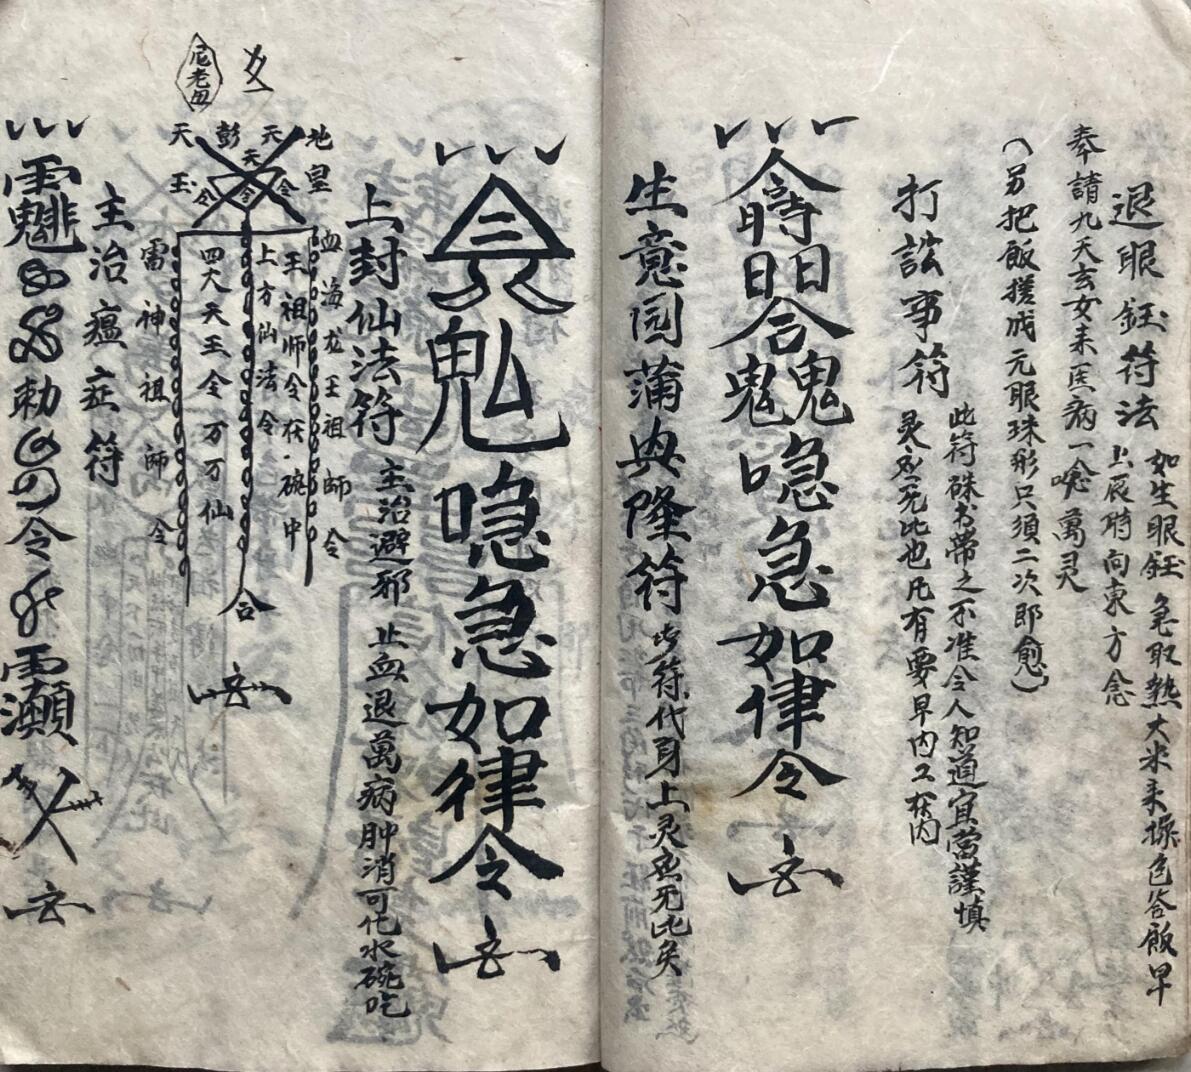 退眼鈺符法
如生眼鈺急取熱大米来搽色谷飯早
上辰時向東方念
奉請九天玄女来医病一唸萬灵
(另把飯搓成元眼珠形只須二次即愈)
打訟事符
此符硃书帶之不准令人知道宜當謹慎
灵應死比也凡有要早内工夜内
喼急如律令
生意园蒲興隆符
此符代身上灵應死比矣
鬼喼急如律令
上封仙法符
主治避邪 止血退萬病肿消可化水碗吃
尼老
地皇
天
彭
天
天
玉
令
令
令
血海龙王祖師令
王祖師令茯碗中
上方仙法令
四大天王令万万仙
雷神祖師令
合
主治瘟症符
勅
令